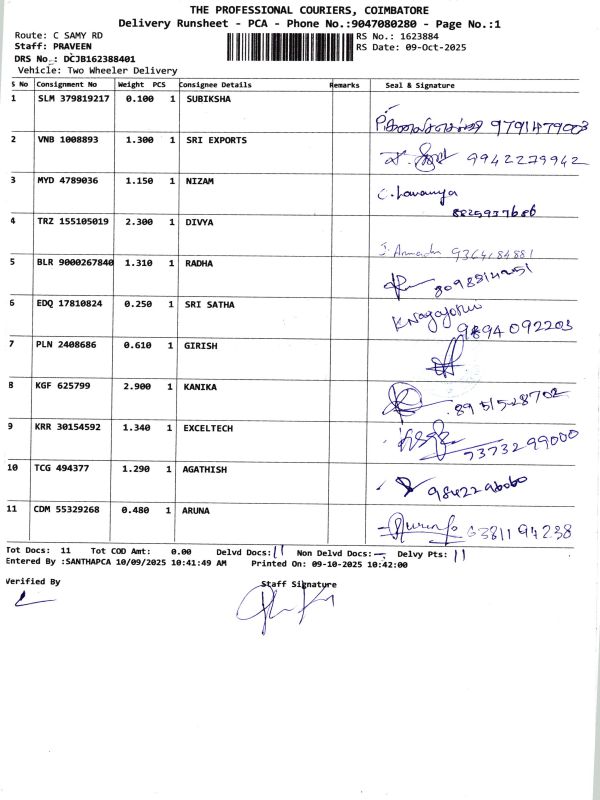 THE PROFESSIONAL COURIERS, COIMBATORE
Delivery Runsheet - PCA - Phone No.:9047080280 - Page No.:1
Route: C SAMY RD
RS No.: 1623884
Staff: PRAVEEN
RS Date: 09-Oct-2025
DRS No.: DCJB162388401
Vehicle: Two Wheeler Delivery
S No Consignment No Weight PCS Consignee Details Remarks Seal & Signature
1 SLM 379819217 0.100 1 SUBIKSHA 9791479003
2 VNB 1008893 1.300 1 SRI EXPORTS 9942279942
3 MYD 4789036 1.150 1 NIZAM C. Lavanya
8825937686
4 TRZ 155105019 2.300 1 DIVYA 9364184881
5 BLR 9000267840 1.310 1 RADHA 8098514251
6 EDQ 17810824 0.250 1 SRI SATHA
9894092203
7 PLN 2408686 0.610 1 GIRISH
8 KGF 625799 2.900 1 KANIKA 8951528702
9 KRR 30154592 1.340 1 EXCELTECH 7373299000
10 TCG 494377 1.290 1 AGATHISH
11 CDM 55329268 0.480 1 ARUNA 6381194238
Tot Docs: 11 Tot COD Amt: 0.00 Delvd Docs: 11 Non Delvd Docs: — Delvy Pts: 11
Entered By :SANTHAPCA 10/09/2025 10:41:49 AM Printed On: 09-10-2025 10:42:00
Verified By Staff Signature